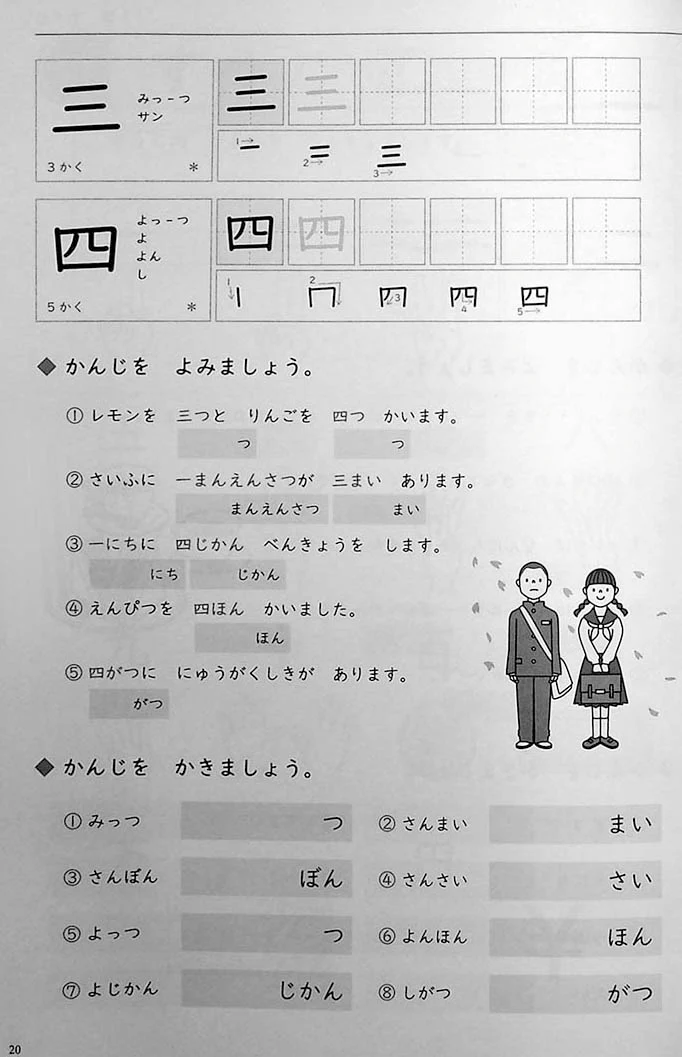 三
みっ-つ
サン
3かく
*
三 三
1→ 2→ 3→
四
よっ-つ
よ
よん
し
5かく
*
四 四
1 2 3 4 5→
◆かんじを よみましょう。
① レモンを 三つと りんごを 四つ かいます。
つ つ
② さいふに 一まんえんさつが 三まい あります。
まんえんさつ まい
③ 一にちに 四じかん べんきょうを します。
にち じかん
④ えんぴつを 四ほん かいました。
ほん
⑤ 四がつに にゅうがくしきが あります。
がつ
◆かんじを かきましょう。
① みっつ つ ② さんまい まい
③ さんぼん ぼん ④ さんさい さい
⑤ よっつ つ ⑥ よんほん ほん
⑦ よじかん じかん ⑧ しがつ がつ
20